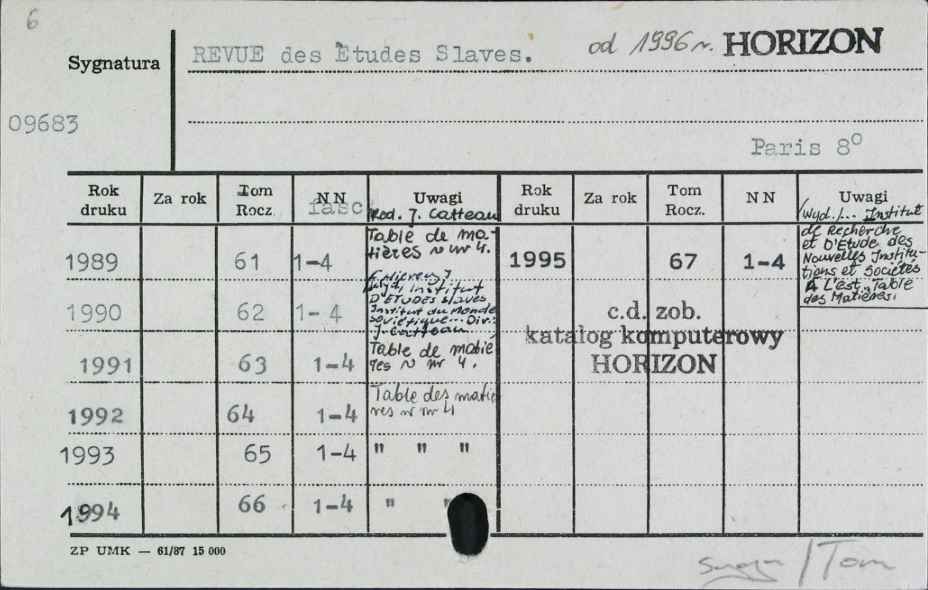 6
Sygnatura
REVUE des Etudes Slaves. od 1996 r. HORIZON
09683
Paris 8°
Rok druku Za rok Tom Rocz. NN fasc Uwagi Rok druku Za rok Tom Rocz. NN Uwagi
Red. J. Catteau
(Wyd.)... Institut
de Recherche
et D'Etude des
Nouvelles Institu-
tions et Sociétés
A L'est, Table
des Matières.
1989 61 1-4 Table de ma-
tières w nr 4.
1995 67 1-4
1990 62 1-4
Institut
D'ETUDES slaves
Institut du Monde
soviétique... Dir.
J. Catteau
c.d. zob.
katalog komputerowy
HORIZON
1991 63 1-4 Table de matie
res w nr 4.
1992 64 1-4 Table des matie
res w nr 4
1993 65 1-4 " " "
1994 66 1-4 " "
ZP UMK — 61/87 15 000
/Tom